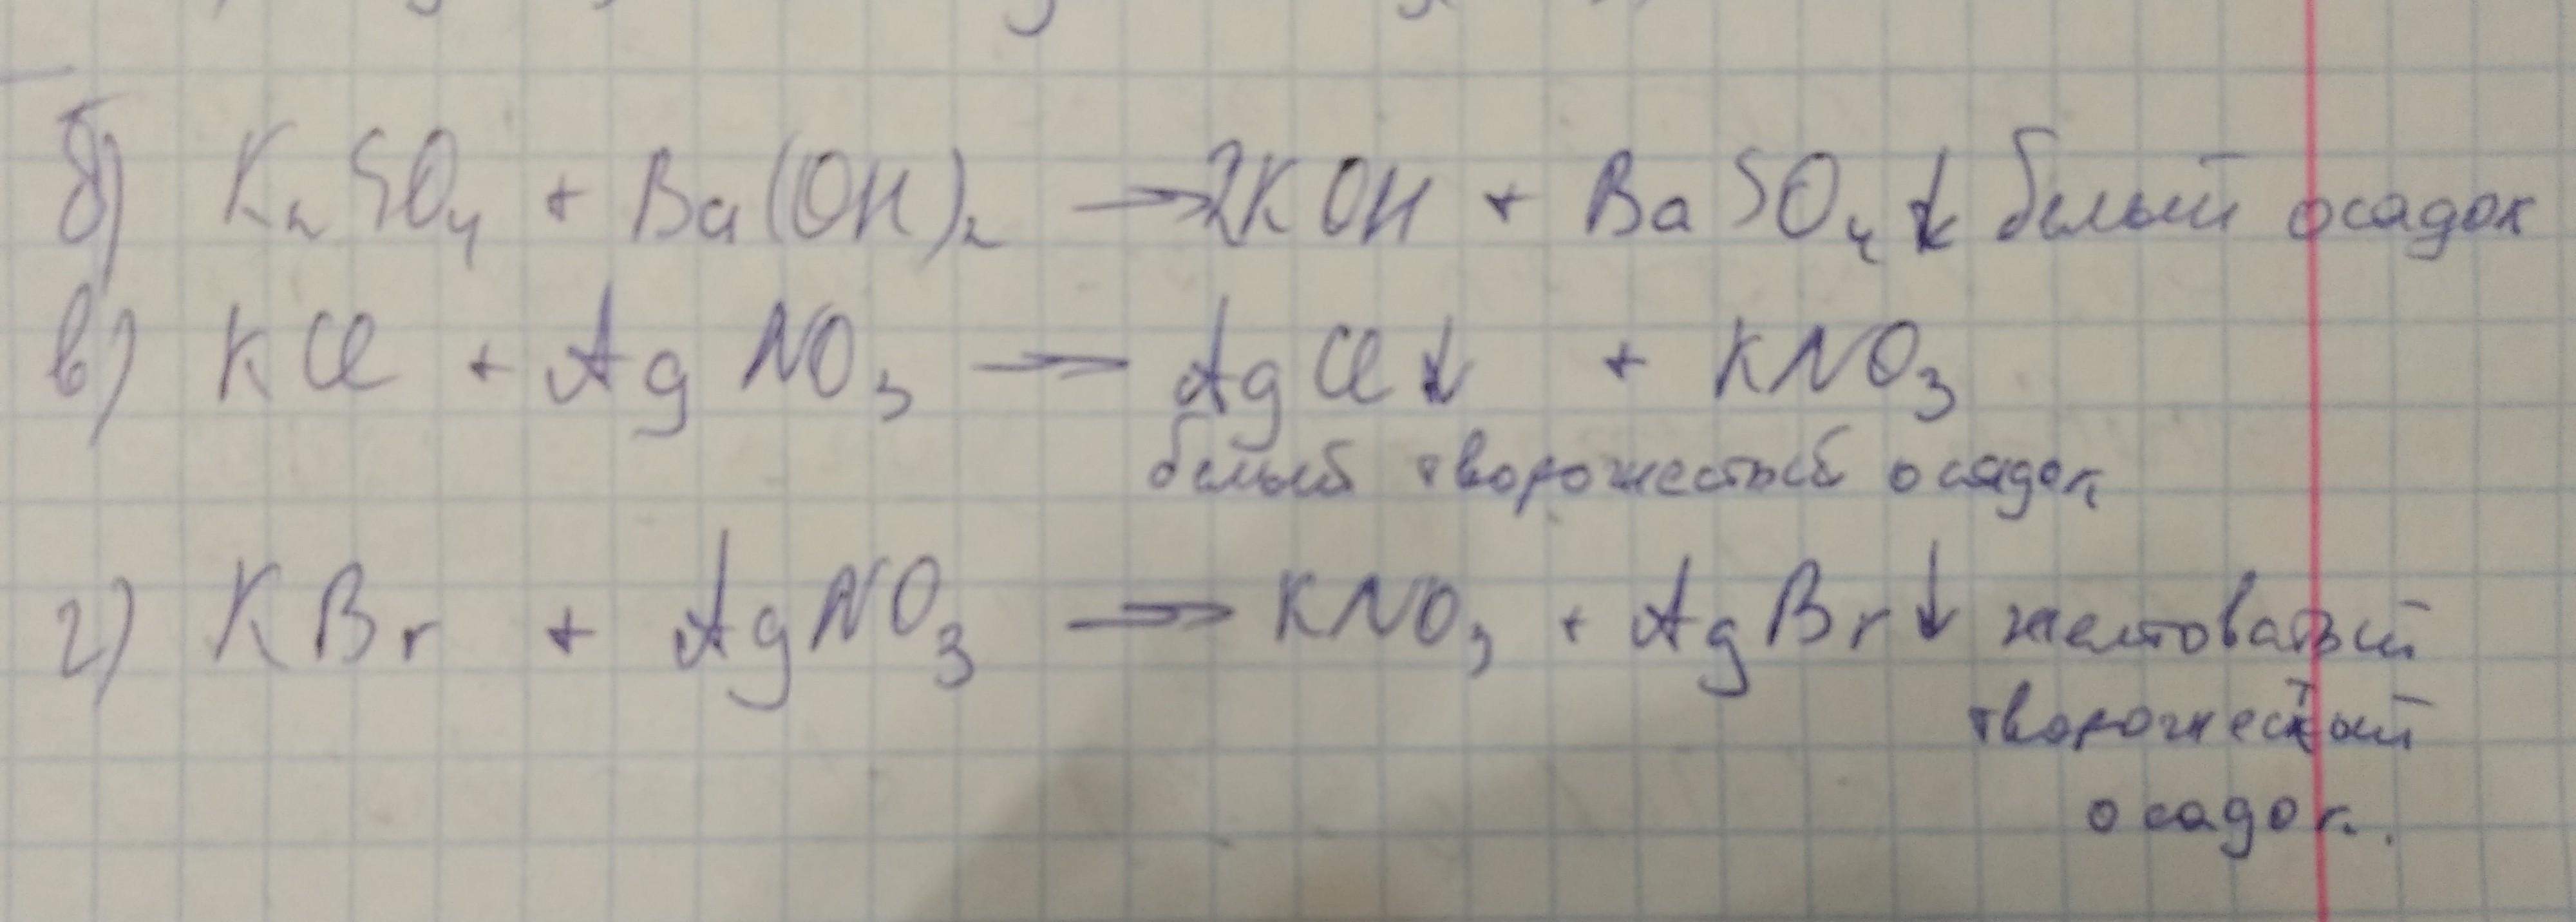 б) K₂SO₄ + Ba(OH)₂ → 2KOH + BaSO₄↓ белый осадок
в) KCl + AgNO₃ → AgCl↓ + KNO₃
белый творожестый осадок
г) KBr + AgNO₃ → KNO₃ + AgBr↓ желтоватый
творожестый
осадок.